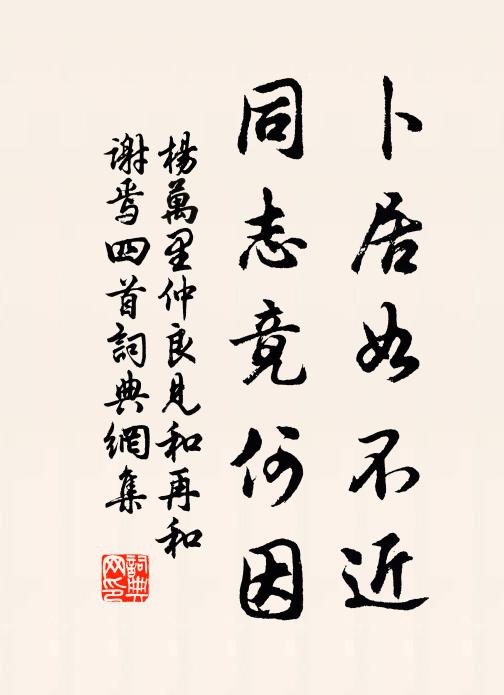 卜居如不近
同志竟何因
楊萬里仲良見和再和
謝焉四首詞典網集
詞典
网印